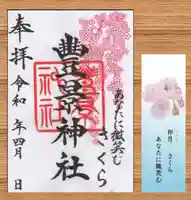 あなたに微笑む
さくら
豊景神社
奉拝 令和 年四月 日
卯月 さくら
あなたに微笑む